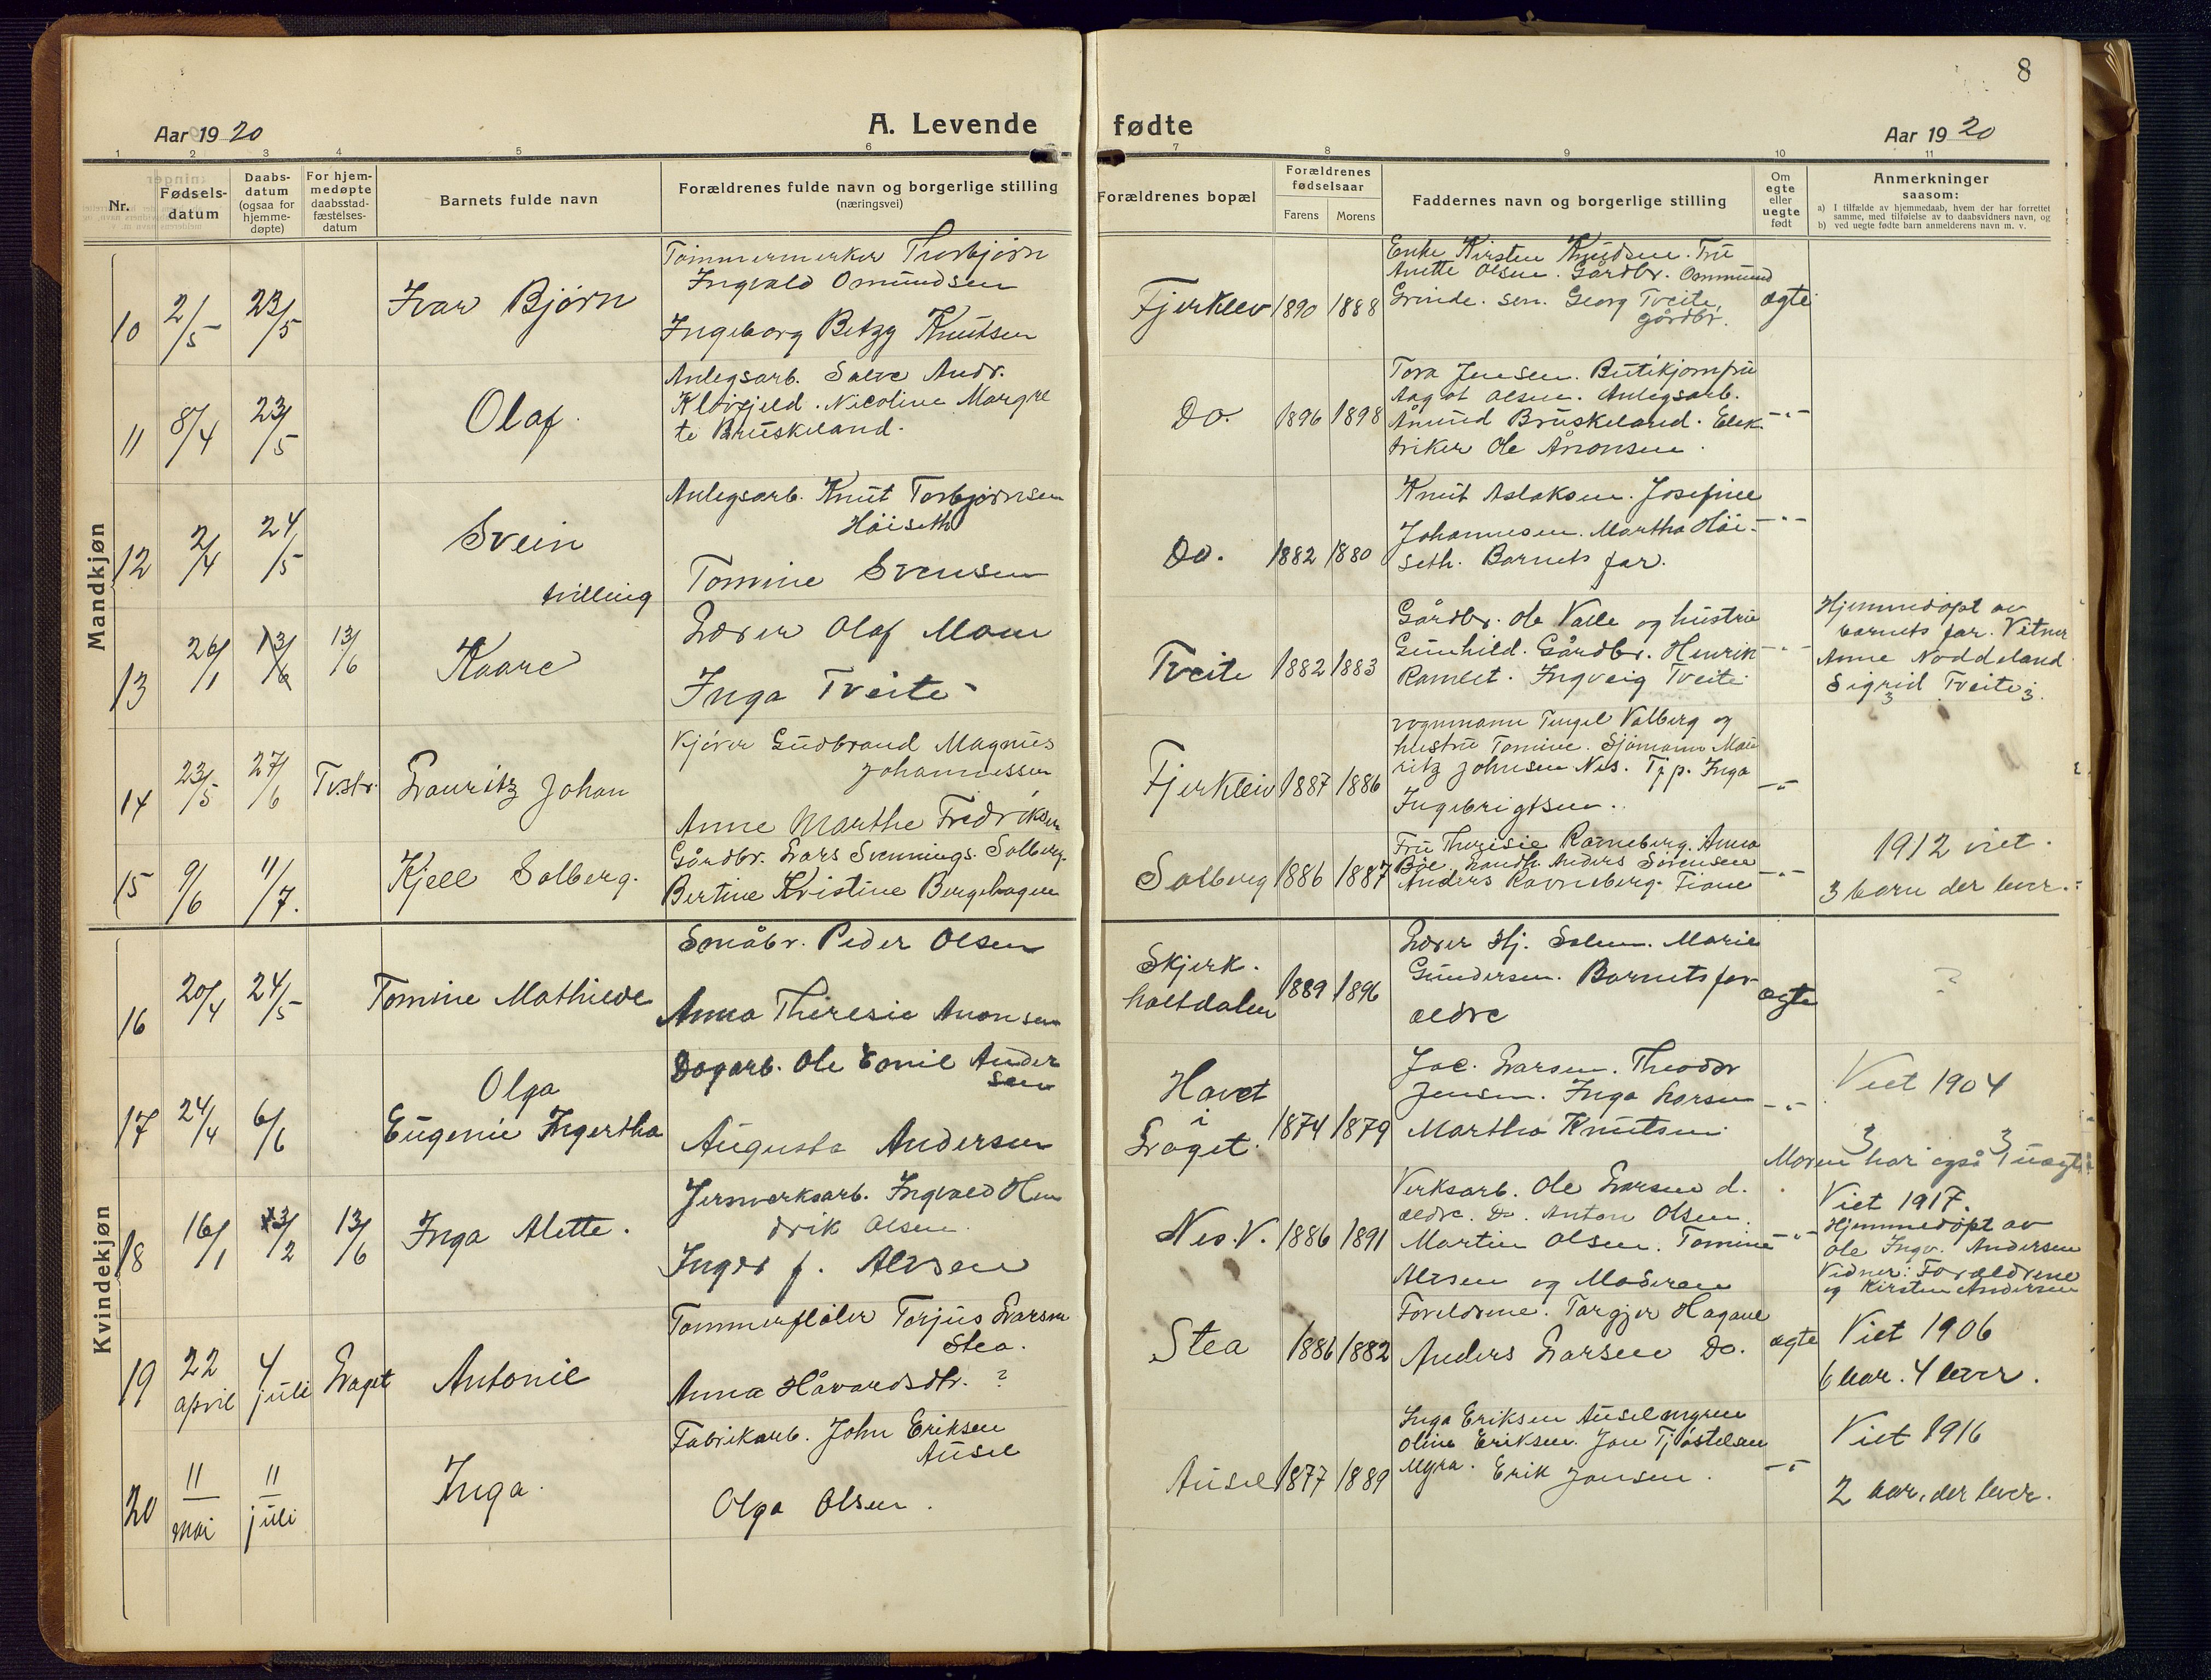 8
Aar 1920
A. Levende fødte
Aar 1920
1 2 3 4 5 6 7 8 9 10 11
Nr.
Fødsels-
datum
Daabs-
datum
(ogsaa for
hjemme-
døpte)
For hjem-
medøpte
daabsstad-
fæstelses-
datum
Barnets fulde navn
Forældrenes fulde navn og borgerlige stilling
(næringsvei)
Forældrenes bopæl
Forældrenes
fødselsaar
Farens
Morens
Faddernes navn og borgerlige stilling
Om
egte
eller
uegte
født
Anmerkninger
saasom:
a) I tilfælde av hjemmedaab, hvem der har forrettet
samme, med tilføielse av to daabsvidners navn, og
b) ved uegte fødte barn anmelderens navn m. v.
Mandkjøn
10
2/5
23/5
Ivar Bjørn
Tømmermerker Thorbjørn
Ingvald Omundsen
Ingeborg Betzy Knutsen
Fjerkleiv
1890
1888
Enke Kirsten Knudsen. Fru
Anette Olsen. Gårdbr. Ommund
Grinde. sen. Georg Tveite,
gårdbr.
egte
11
8/4
23/5
Olaf.
Anlegsarb. Salve Andr.
Kløvfjeld. Nicoline Margre
te Bruskeland.
Do.
1896
1898
Tora Jensen. Butikjomfru
Aagot Olsen. Anlegsarb.
Åmund Bruskeland. Elek-
triker Ole Ånonsen.
-"-
12
2/4
24/5
Svein
tvilling
Anlegsarb. Knut Torbjørnsen
Høiseth
Tomine Svensen
Do.
1882
1880
Knut Aslaksen. Josefine
Johannesen. Martha Høi-
seth. Barnets far.
-"-
13
26/1
13/6
13/6
Kaare
Lærer Olaf Moen
Inga Tveite
Tveite
1882
1883
Gårdbr. Ole Valle og hustru
Gunhild. Gårdbr. Henrik
Ramlet. Ingveig Tveite
-"-
Hjemmedøpt av
barnets far. Vitner
Anne Noddeland
Sigrid Tveite
14
23/5
27/6
Tv.str.
Lauritz Johan
Kjører Gudbrand Magnus
Johannessen
Anne Marthe Fredriksen
Fjerkleiv
1887
1886
vognmann Tengel Valberg og
hustru Tomine. Sjømann Mau
ritz Johnsen Nes. Tjp. Inga
Ingebrigtsen.
-"-
15
9/6
11/7.
Kjell Solberg.
Gårdbr. Lars Svennings. Solberg.
Bertine Kristine Bergehagen
Solberg
1886
1887
Fru Theresie Ravneberg. Anna
Bøe. Landh. Anders Sørensen
Anders Ravneberg. Tiane
-"-
1912 viet.
3 barn der lever.
Kvindekjøn
16
20/4
24/5
Tomine Mathilde
Småbr. Peder Olsen
Anna Theresie Anonsen
Skjerk.
holtdalen
1889
1896
Lærer Hj. Solem. Marie
Gundersen. Barnets for
ældre
egte
?
17
24/4
6/6
Olga
Eugenie Ingertha
Dagarb. Ole Emil Ander
sen
Augusta Andersen
Havet
i
Laget.
1874
1879
Jac. Larsen. Theodor
Jensen. Inga Larsen
Martha Knutsen
-"-
Viet 1904
3 3
Moren har også 1 uegte
18
16/1
13/2
13/6
Inga Alette.
Jernverksarb. Ingvald Hen
drik Olsen
Inger f. Alvsen
Nes. V.
1886
1891
Verksarb. Ole Larsen d.
ældre. Do. Anton Olsen.
Martin Olsen. Tomine
Alvsen og Moderen
-"-
Viet 1917.
Hjemmedøpt av
Ole Ingv. Andersen
Vidner: Forældrene
og Kirsten Andersen
19
22
april
4
juli
Laget
Antonie
Tømmerfløter Torjus Larsen
Stea.
Anna Håvardsdtr. ?
Stea
1886
1882
Foreldrene. Targjer Hagane
Anders Larsen Do.
egte
Viet 1906
6 bar. 4 lever.
20
11
mai
11
juli
Inga.
Fabrikarb. John Eriksen
Ausel
Olga Olsen.
Ausel
1877
1889
Inga Eriksen Auselmyren
Olina Eriksen. Jon Tjøstelsen
Myra. Erik Jonsen.
-"-
Viet 1916
2 bar. der lever.